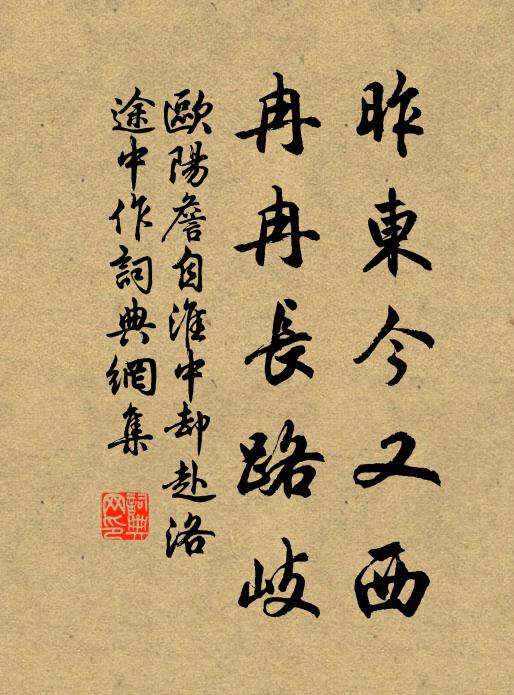 昨東今又西
冉冉長路岐
歐陽詹自淮中却赴洛
途中作詞典網集
詞典網印